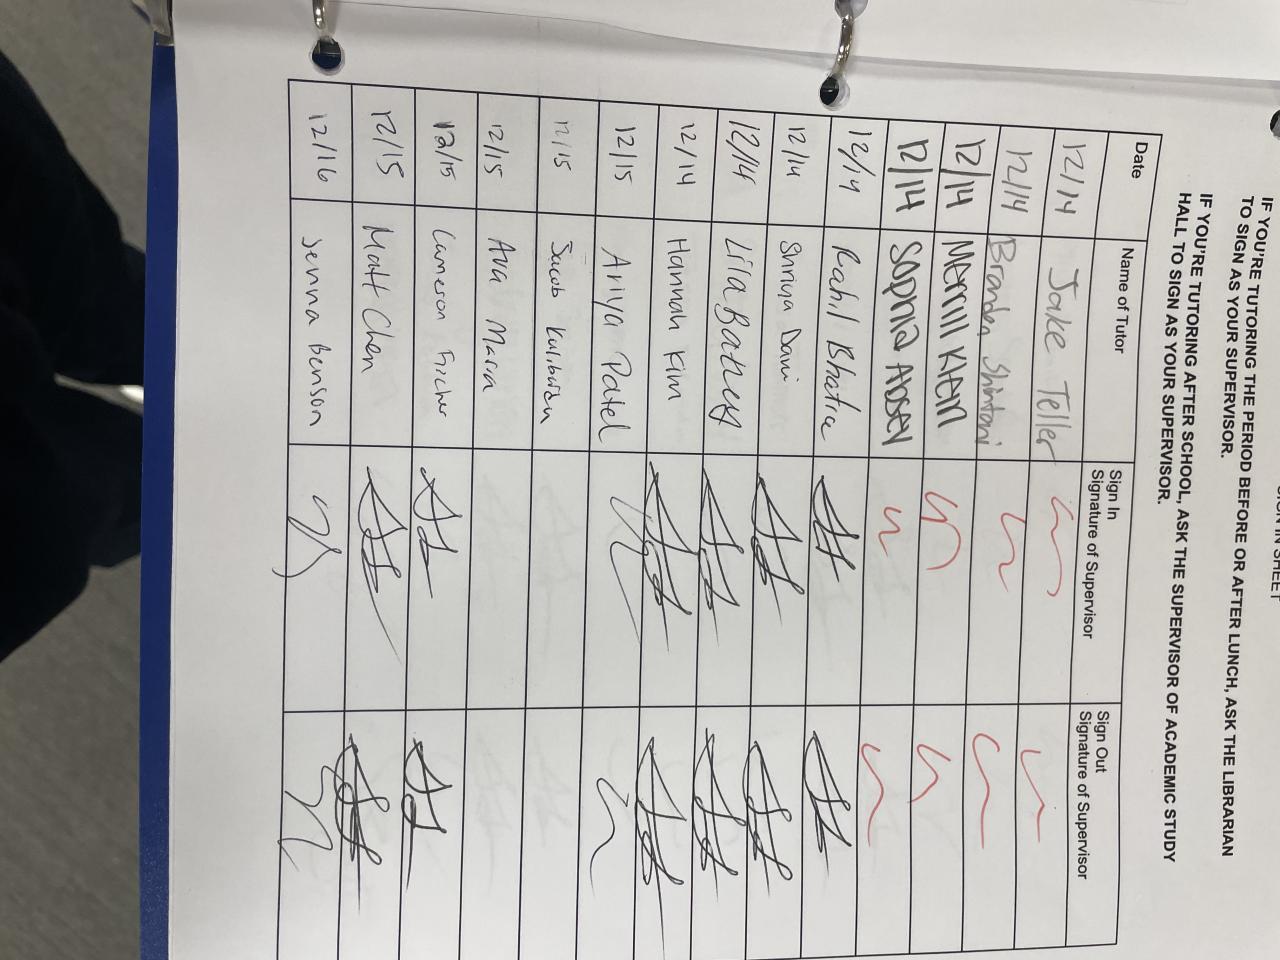 SIGN IN SHEET
IF YOU'RE TUTORING THE PERIOD BEFORE OR AFTER LUNCH, ASK THE LIBRARIAN
TO SIGN AS YOUR SUPERVISOR.
IF YOU'RE TUTORING AFTER SCHOOL, ASK THE SUPERVISOR OF ACADEMIC STUDY
HALL TO SIGN AS YOUR SUPERVISOR.
Date Name of Tutor Sign In Signature of Supervisor Sign Out Signature of Supervisor
12/14 Jake Teller
12/14 Brandon Shintani
12/14 Merrill Klein
12/14 Sophia
12/14 Rahil Bhatia
12/14 Shriya
12/14 Lila
12/14 Hannah Kim
12/15 Ariya Patel
12/15 Jacob
12/15 Ava
12/15 Cameron
12/15 Matt Chen
12/16 Jenna Benson